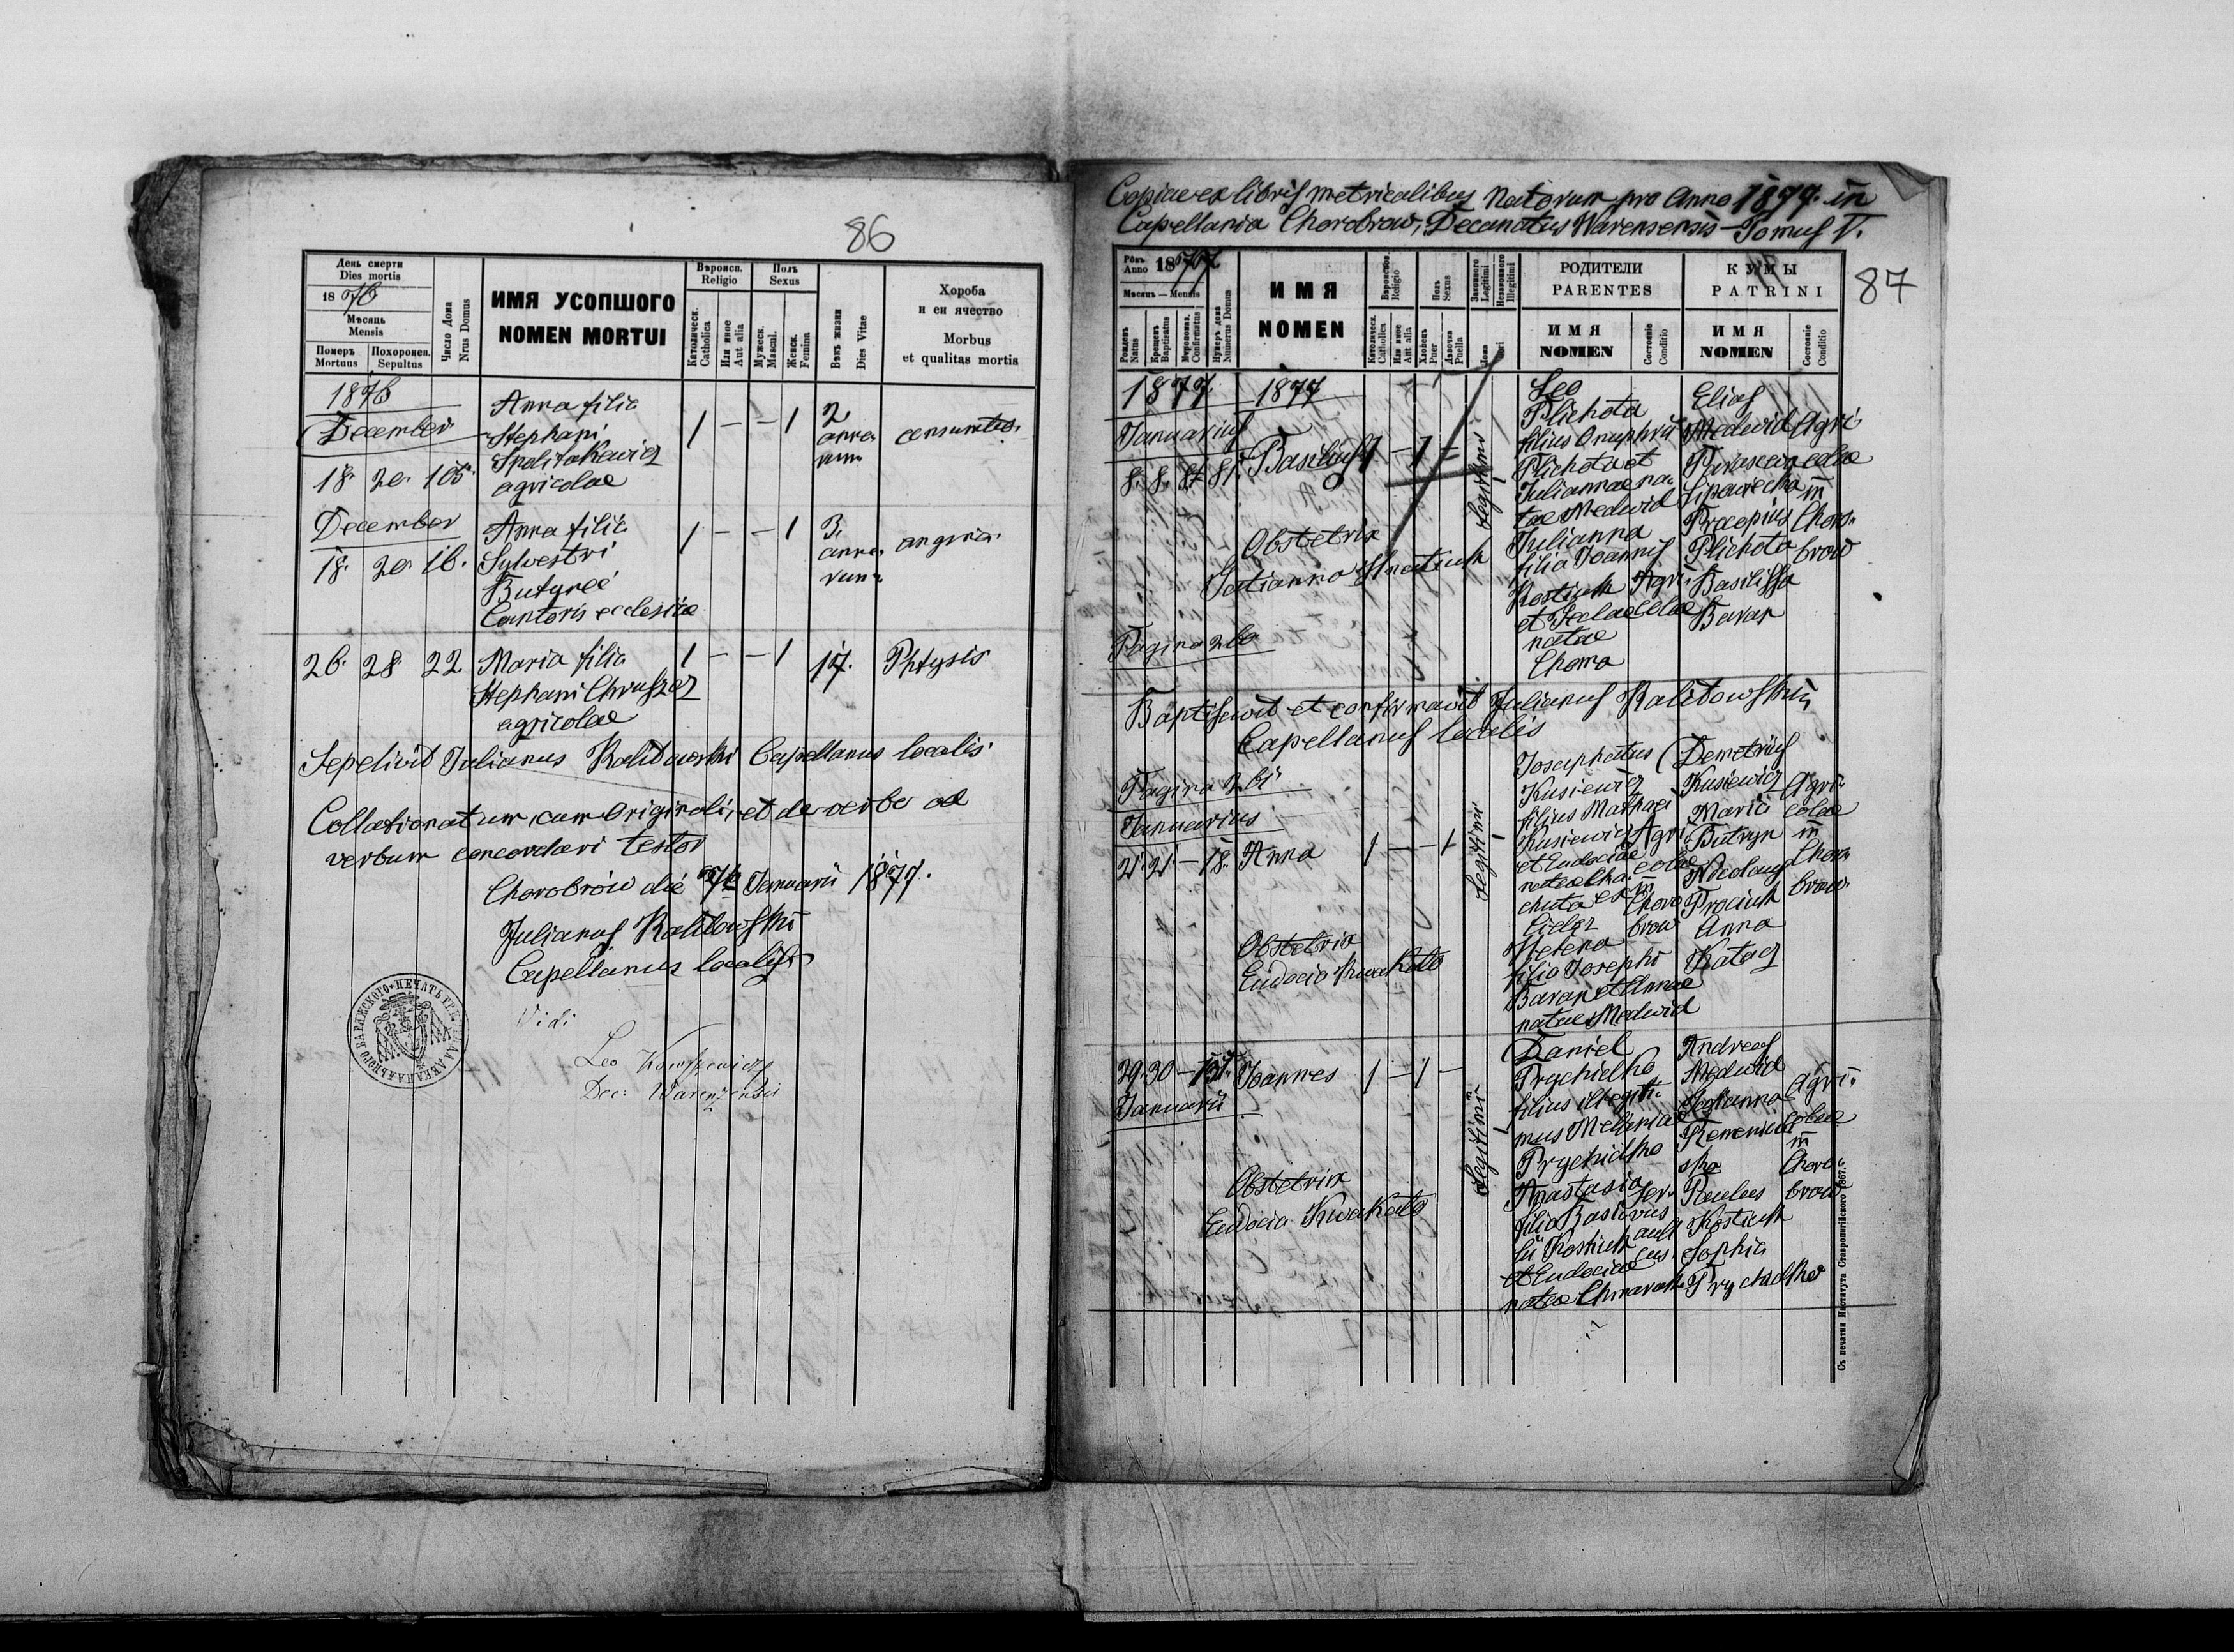 86
День смерти
Dies mortis
1876
Мѣсяць
Mensis
Померъ
Mortuus
Похоронен.
Sepultus
Число Дома
Nrus Domus
ИМЯ УСОПШОГО
NOMEN MORTUI
Вѣроисп.
Religio
Католическ.
Catholica
Или иное
Aut alia
Полъ
Sexus
Мужеск.
Mascul.
Женск.
Femina
Вѣкъ жизни
Dies Vitae
Хороба
и еи ячество
Morbus
et qualitas mortis
1876
December
18. 20. 105.
Anna filia
Stephani
agricolae
1 — — 1
2
annorum
December
18. 20. 16.
Anna filia
Sylvestri
Cantoris ecclesiae
1 — — 1
3.
annorum
angina.
26. 28. 22.
Maria filia
Stephani Chruszcz
agricolae
1 — — 1
17.
Phtysis
Sepelivit Julianus Kalitowski Capellanus localis.
Collationatum cum originali, et de verbo ad
verbum concordari testor
Chorobrów die 7ᵃ Januarii 1877.
Julianus Kalitowski
Capellanus localis
Vidi
Leo
Dec: Warenzensis
87
Copia ex libris metricalibus Natorum pro Anno 1877. in
Capellania Chorobrow, Decanatus Warensensis Tomus V.
Рôкъ
Anno 1877
Мѣсяць — Mensis
Рожденъ
Natus
Крещенъ
Baptisatus
Мѵропозна.
Confirmatus
Нумеръ дома
Numerus Domus
ИМЯ
NOMEN
Вѣроиспов.
Religio
Католическ.
Catholica
Или иное
Aut alia
Полъ
Sexus
Хлопецъ
Puer
Дѣвочка
Puella
Законного
Legitimi
Незаконного
Illegitimi
РОДИТЕЛИ
PARENTES
ИМЯ
NOMEN
Состояніе
Conditio
КУМЫ
PATRINI
ИМЯ
NOMEN
Состояніе
Conditio
1877. 1877
Januarius
8. 8. 8. 81.
Basilius
1 — 1 —
Legitimi
Obstetrix
Tatianna Hnatiuk
Leo
Plichota
filius Onuphrii
Plichota et
Juliannae na-
tae Medwid
Julianna
filia Joannis
Kostiuk
et Teclae
natae
Choma
Agri-
colae
Elias
Medwid
Parascevia
Lipowecka
Procopius
Plichota
Basilissa
Baran
Agri-
colae
in
Choro-
brow
Pagina 260
Baptisavit et confirmavit Julianus Kalitowski
Capellanus localis
Pagina 261
Januarius
21. 21. — 18.
Anna
1 — — 1
Legitimi
Obstetrix
Eudocia Kwakało
Josaphatus
Kusiewicz
filius Mathaei
Kusiewicz
et Eudociae
natae
Helena
filia Josephi
Baran et Annae
natae Medwid
Agri-
colae
in
Choro
brow
Demetrius
Kusiewicz
Maria
Butryn
Nicolaus
Prociuk
Anna
Katacz
Agri-
colae
in
Choro-
brow.
29. 30 —
Januarii
Joannes
1 — 1 —
Legitimi
Obstetrix
Eudocia Kwakało
Daniel
Prychidko
filius illegiti-
mus Melania
Prychidko
Anastasia
filia Basi-
lii Kostiuk
et Eudociae
natae
Andreas
Medwid
Paulus
Kostiuk
Sophia
Prychidko
Agri-
colae
in
Choro-
brow
Съ печатни Института Ставропигійского 1867.